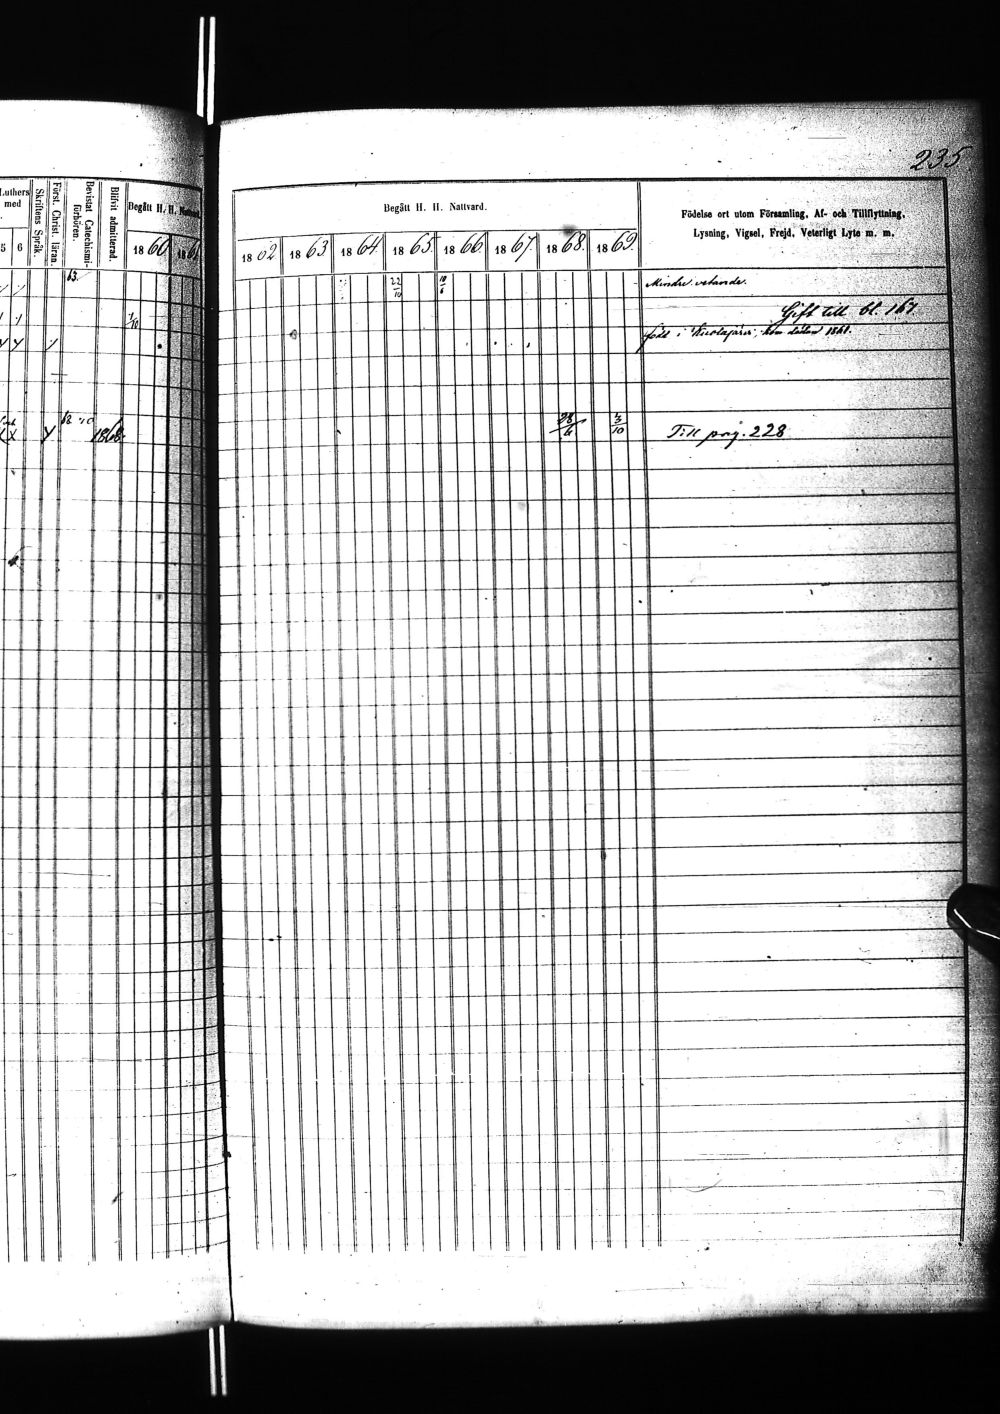 235
Luthers
med
5 6
Skriftens Språk.
Först. Christ. läran.
Bevistat Catechismi-
förhören.
Blifvit admitterad.
Begått H. H. Nattvard.
1860 186
Begått H. H. Nattvard.
1862 1863 1864 1865. 1866. 1867. 1868. 1869.
Födelse ort utom Församling, Af- och Tillflyttning,
Lysning, Vigsel, Frejd, Veterligt Lyte m. m.
63. 22/10 10/6 Mindre vetande.
1/10 Gift till bl. 167.
född i
1861.
1868. 28/6 3/10 Till pag. 228